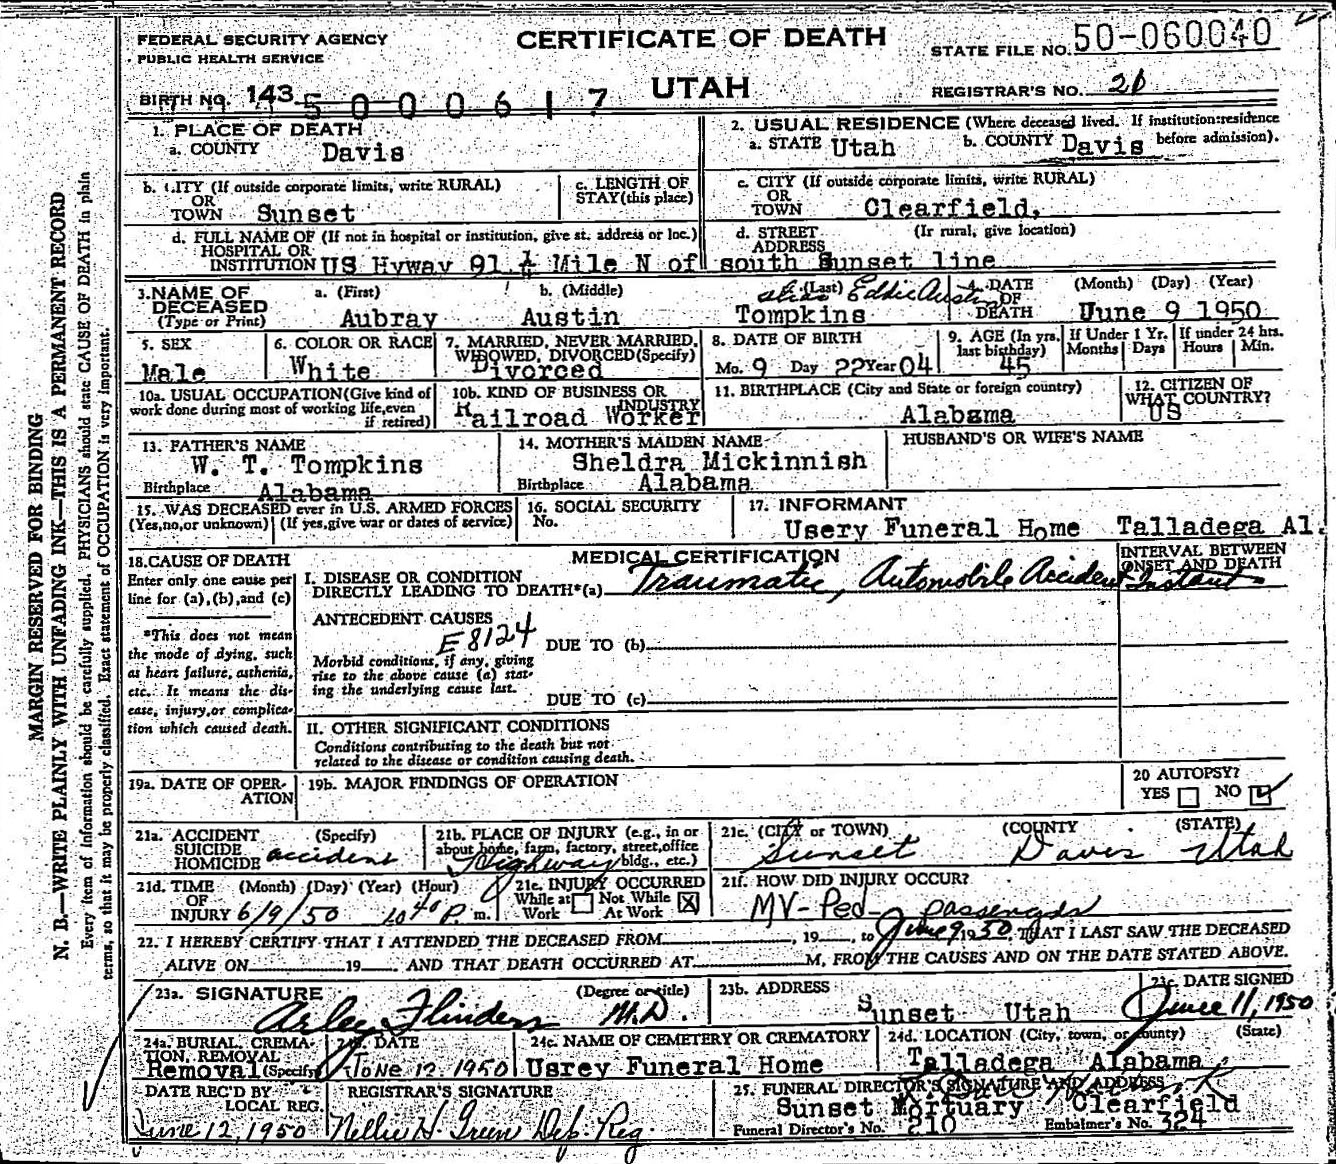 FEDERAL SECURITY AGENCY
PUBLIC HEALTH SERVICE
CERTIFICATE OF DEATH
UTAH
STATE FILE NO. 50-060040
BIRTH NO. 143 5000617
REGISTRAR'S NO. 20
1. PLACE OF DEATH
a. COUNTY Davis
2. USUAL RESIDENCE (Where deceased lived. If institution: residence before admission).
a. STATE Utah b. COUNTY Davis
b. CITY (If outside corporate limits, write RURAL) OR TOWN Sunset
c. LENGTH OF STAY (this place)
c. CITY (If outside corporate limits, write RURAL) OR TOWN Clearfield,
d. FULL NAME OF (If not in hospital or institution, give st. address or loc.) HOSPITAL OR INSTITUTION US Hyway 91 ¼ Mile N of south Sunset line
d. STREET ADDRESS (If rural, give location)
3. NAME OF DECEASED (Type or Print)
a. (First) Aubray
b. (Middle) Austin
c. (Last) Tompkins
alias Eddie Austin
4. DATE OF DEATH (Month) (Day) (Year) June 9 1950
5. SEX Male
6. COLOR OR RACE White
7. MARRIED, NEVER MARRIED, WIDOWED, DIVORCED (Specify) Divorced
8. DATE OF BIRTH Mo. 9 Day 22 Year 04
9. AGE (In yrs. last birthday) 45
If Under 1 Yr. Months Days
If under 24 hrs. Hours Min.
10a. USUAL OCCUPATION (Give kind of work done during most of working life, even if retired)
10b. KIND OF BUSINESS OR INDUSTRY Railroad Worker
11. BIRTHPLACE (City and State or foreign country) Alabama
12. CITIZEN OF WHAT COUNTRY? US
13. FATHER'S NAME W. T. Tompkins
Birthplace Alabama
14. MOTHER'S MAIDEN NAME Sheldra Mickinnish
Birthplace Alabama
HUSBAND'S OR WIFE'S NAME
15. WAS DECEASED ever in U.S. ARMED FORCES (Yes, no, or unknown) (If yes, give war or dates of service)
16. SOCIAL SECURITY No.
17. INFORMANT Usery Funeral Home Talladega Al.
18. CAUSE OF DEATH
Enter only one cause per line for (a), (b), and (c)
*This does not mean the mode of dying, such as heart failure, asthenia, etc. It means the disease, injury, or complication which caused death.
MEDICAL CERTIFICATION
INTERVAL BETWEEN ONSET AND DEATH
I. DISEASE OR CONDITION DIRECTLY LEADING TO DEATH*(a) Traumatic, Automobile Accident Instant
ANTECEDENT CAUSES
E8124
DUE TO (b)
Morbid conditions, if any, giving rise to the above cause (a) stating the underlying cause last.
DUE TO (c)
II. OTHER SIGNIFICANT CONDITIONS
Conditions contributing to the death but not related to the disease or condition causing death.
19a. DATE OF OPERATION
19b. MAJOR FINDINGS OF OPERATION
20 AUTOPSY?
YES NO
21a. ACCIDENT SUICIDE HOMICIDE (Specify) accident
21b. PLACE OF INJURY (e.g., in or about home, farm, factory, street, office bldg., etc.) Highway
21c. (CITY or TOWN) (COUNTY) (STATE)
Sunset Davis Utah
21d. TIME OF INJURY (Month) (Day) (Year) (Hour) 6/9/50 10 40 P. m.
21e. INJURY OCCURRED While at Work Not While At Work X
21f. HOW DID INJURY OCCUR?
MV-Ped- passenger
22. I HEREBY CERTIFY THAT I ATTENDED THE DECEASED FROM , 19 , to June 9, 1950, THAT I LAST SAW THE DECEASED
ALIVE ON 19 , AND THAT DEATH OCCURRED AT M, FROM THE CAUSES AND ON THE DATE STATED ABOVE.
23a. SIGNATURE (Degree or title) Arley Flinders M.D.
23b. ADDRESS Sunset Utah
23c. DATE SIGNED June 11, 1950
24a. BURIAL, CREMATION, REMOVAL (Specify) Removal
24b. DATE June 12, 1950
24c. NAME OF CEMETERY OR CREMATORY Usrey Funeral Home
24d. LOCATION (City, town, or county) (State) Talladega Alabama
DATE REC'D BY LOCAL REG. June 12, 1950
REGISTRAR'S SIGNATURE Nellie H. Green Dep. Reg.
25. FUNERAL DIRECTOR'S SIGNATURE AND ADDRESS
Sunset Mortuary Clearfield
Funeral Director's No. 210 Embalmer's No. 324
MARGIN RESERVED FOR BINDING
N. B.—WRITE PLAINLY WITH UNFADING INK—THIS IS A PERMANENT RECORD
Every item of information should be carefully supplied. PHYSICIANS should state CAUSE OF DEATH in plain
terms, so that it may be properly classified. Exact statement of OCCUPATION is very important.